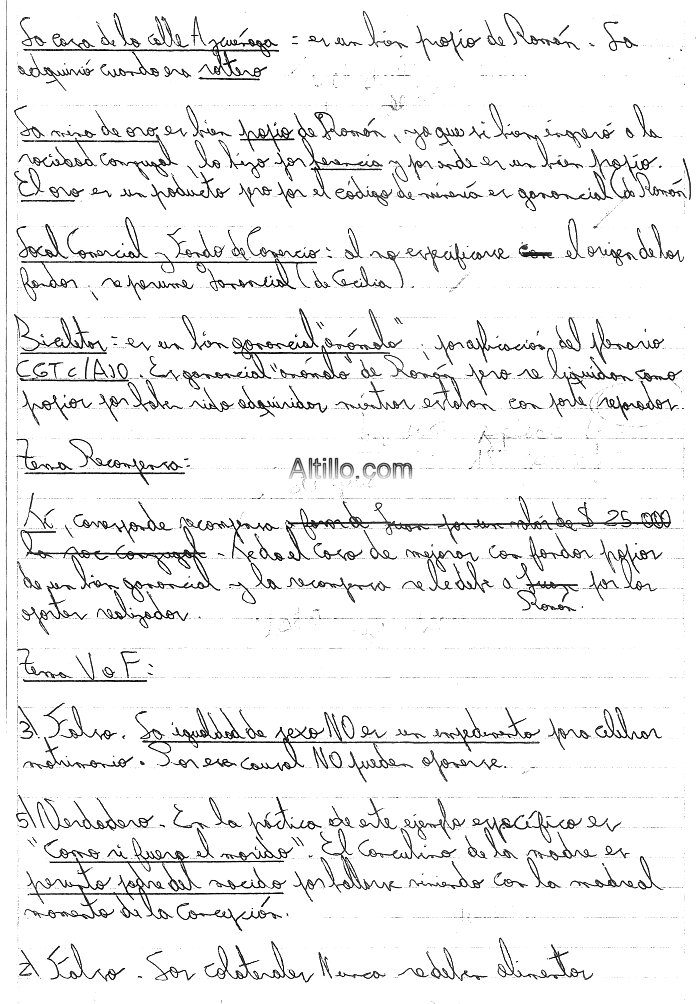 La casa de la calle Azcuénaga = es un bien propio de Román. La
adquirió cuando era soltero
La mina de oro es bien propio de Román, ya que si bien ingresó a la
sociedad conyugal, lo hizo por herencia y por ende es un bien propio.
El oro es un producto pero por el código de minería es ganancial (de Román)
Local Comercial y Fondo de Comercio: al no especificarse el origen de los
fondos, se presume Ganancial (de Cecilia).
Bicicletas = es un bien ganancial "anómalo", por aplicación del plenario
CGT c/ AJO. Es ganancial "anómalo" de Román pero se liquidan como
propios por haber sido adquiridos mientras estaban con separados.
Tema Recompensa:
Sí, corresponde recompensa a favor de Juan por un valor de $ 25.000
la soc conyugal. Se da el caso de mejoras con fondos propios
de un bien ganancial y la recompensa se le debe a Juan por los
Román.
aportes realizados.
Tema V o F:
3) Falso. La igualdad de sexo NO es un impedimento para celebrar
matrimonio. Por esa causal NO pueden oponerse.
5) Verdadero. En la práctica de este ejemplo específico es
"Como si fuera el marido". El Concubino de la madre es
presunto padre del nacido por hallarse viviendo con la madre al
momento de la Concepción.
2) Falso. Los colaterales Nunca se deben alimentos
Altillo.com